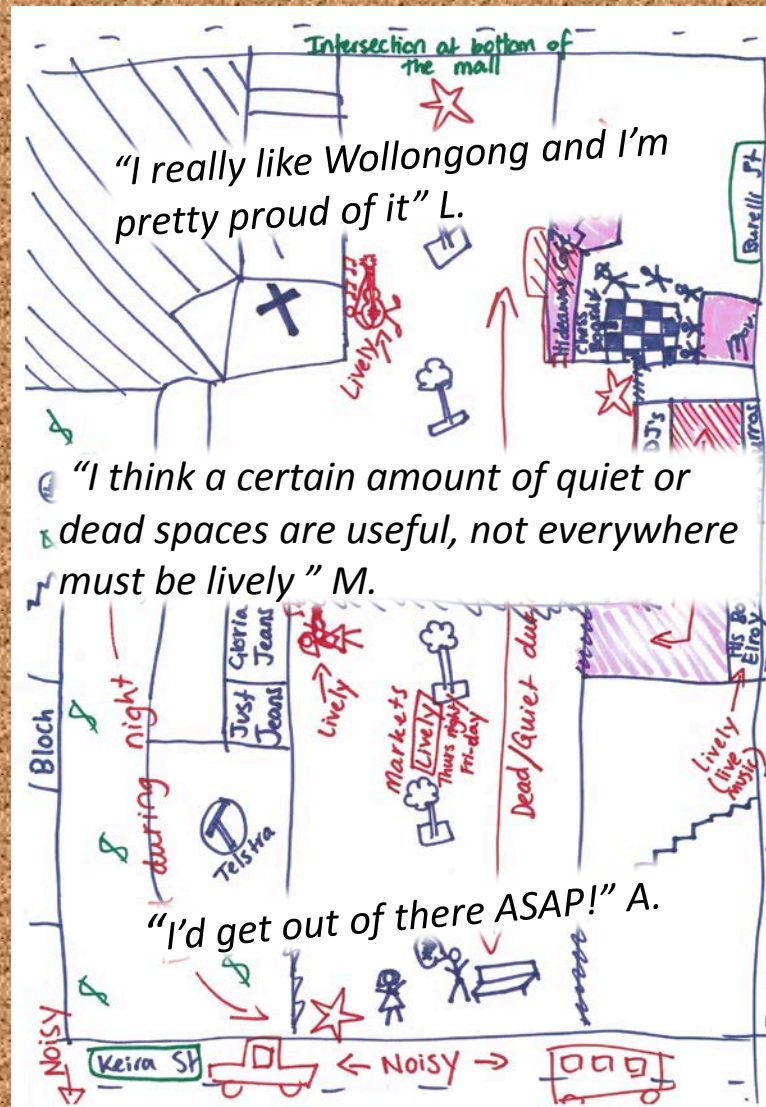 Intersection at bottom of
the mall
“I really like Wollongong and I’m
pretty proud of it” L.
Burelli St
Hideaway Cafe
Chess
Lively
DJ's
“I think a certain amount of quiet or
dead spaces are useful, not everywhere
must be lively ” M.
Gloria
Jeans
Just
Jeans
Lively
Markets
Lively
Thurs night
Fri-day
Dead/Quiet
Elroy
Lively
(live
music)
Bloch
during night
T
Telstra
“I’d get out of there ASAP!” A.
Noisy
Keira St
← Noisy →